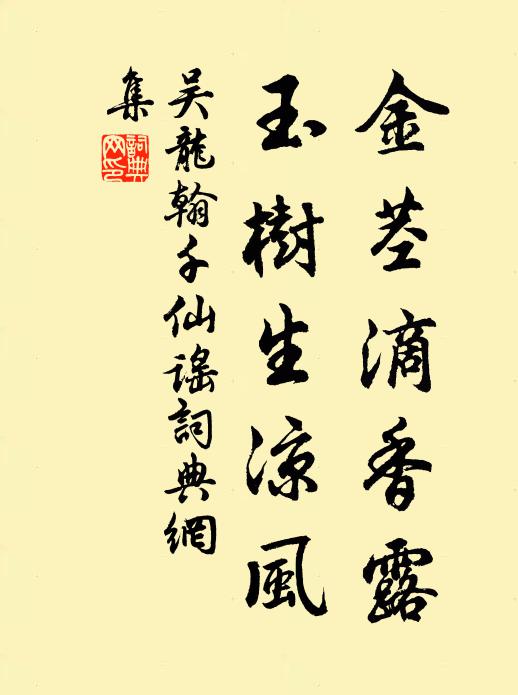 金茎滴香露
玉樹生涼風
吳龍翰千仙謠詞典網
集
詞典
网印